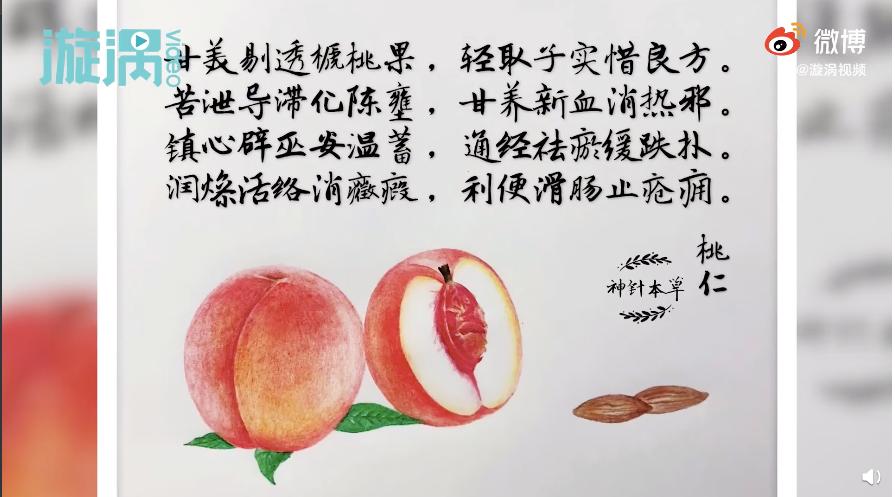 漩涡
video
微博
@漩涡视频
甘美剔透榹桃果，轻取子实惜良方。
苦泄导滞化陈壅，甘养新血消热邪。
镇心辟巫安温蓄，通经祛瘀缓跌扑。
润燥活络消癥瘕，利便滑肠止疮痈。
桃仁
神针本草